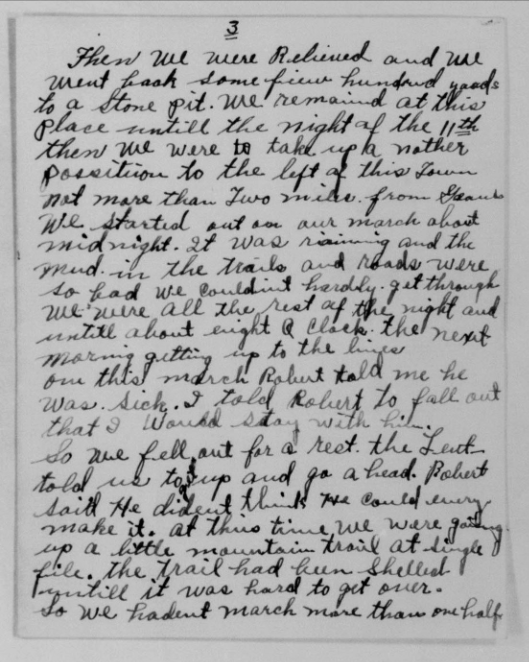 3
Then we were Relieved and we
went back some fiew hundred yards
to a stone pit. We remained at this
place untill the night of the 11th
then we were to take up a nother
possition to the left of this Town
not more than Two miles. from
We started out on our march about
midnight. It was raining and the
mud. in the trails and roads were
so bad we couldint hardly. get through
we were all the rest of the night and
untill about eight O clock. the next
morning getting up to the lines
on this march Robert told me he
was. sick. I told Robert to fall out
that I would stay with him.
So we fell out for a rest. the Leut
told us to up and go a head. Robert
said He dident think He could every
make it. at this time we were going
up a little mountain trail at single
file. the trail had been shelled
untill it was hard to get over.
So we hadent march more than one half